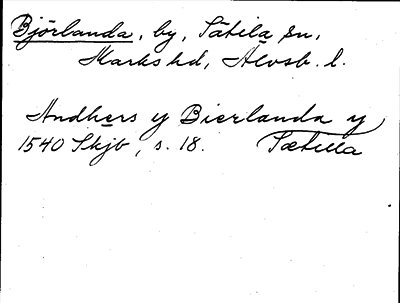 Björlanda, by, Sätila sn,
Marks hd, Älvsb. l.
Andhers y Bierlanda y Sætilla
1540 Skjb, s. 18.